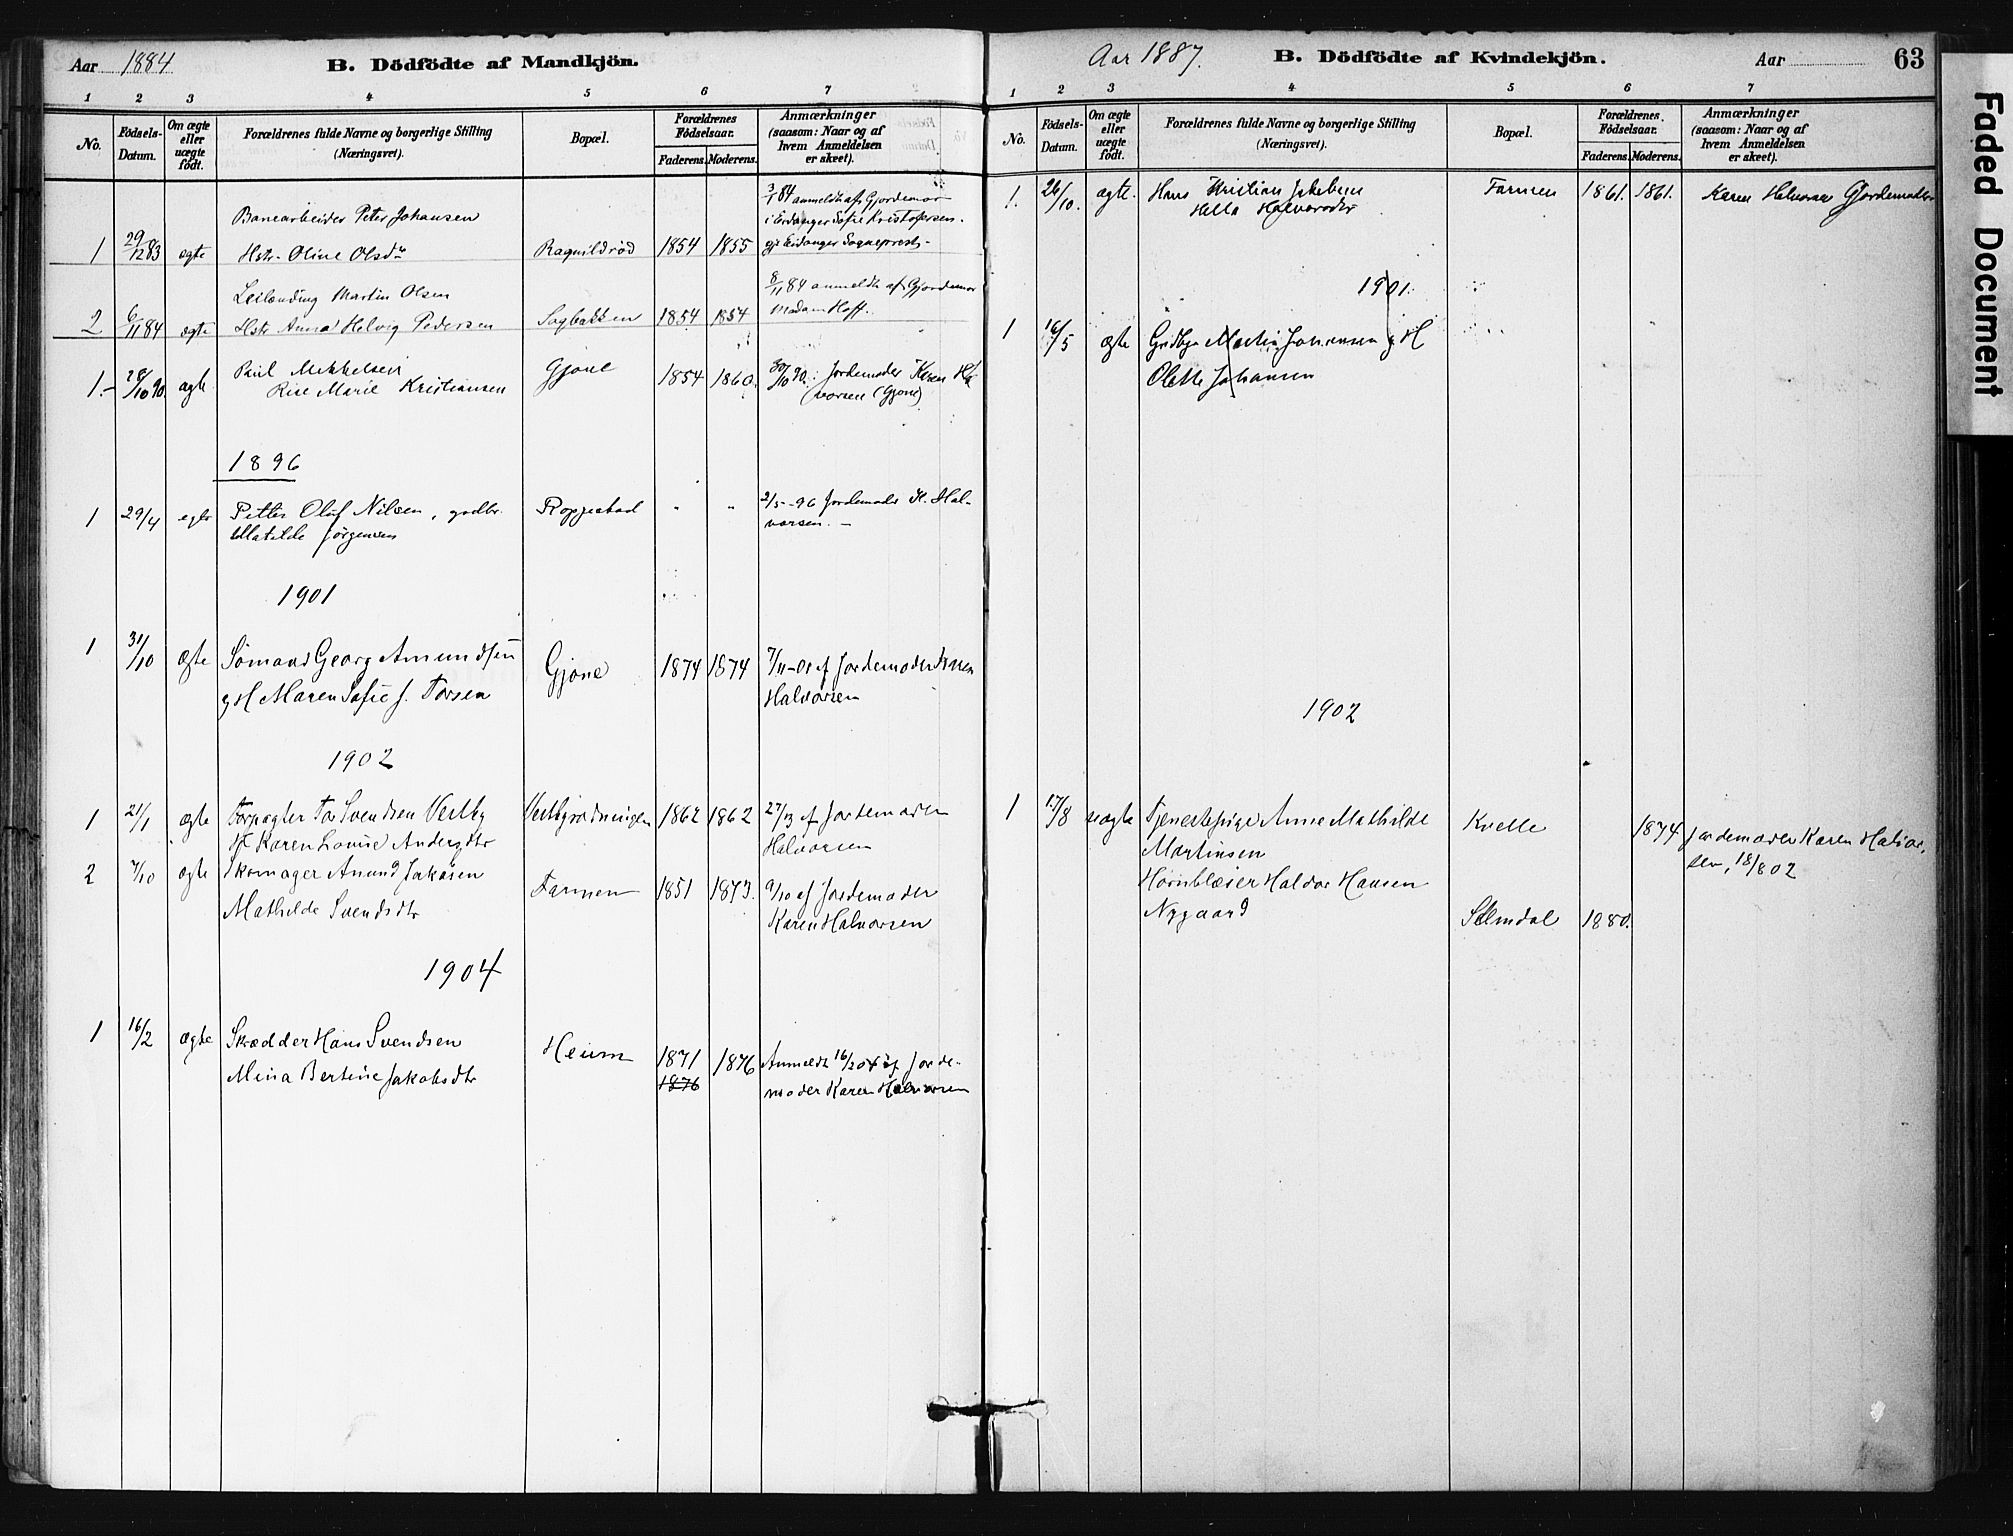 Aar 1884
B. Dödfödte af Mandkjön.
1 2 3 4 5 6 7
No.
Födsels-Datum.
Om ægte eller uægte födt.
Forældrenes fulde Navne og borgerlige Stilling (Næringsvei).
Bopæl.
Forældrenes Födselsaar.
Faderens. Moderens.
Anmærkninger (saasom: Naar og af hvem Anmeldelsen er skeet).
Banearbeider Peter Johansen
3/1 84 anmeldt af Gjordemor
i Eidanger Sofie Kristofersen.
1 29/12 83 ægte Hstr. Oline Olsdtr Ragnildrød 1854 1855 Eidanger Sogneprest
Leilænding Martin Olsen
8/11 84 anmeldt af Gjordemor
2 6/11 84 ægte Hstr Anna Helvig Pedersen Sagbakken 1854 1854 Madam Hoff.
1. 28/10 90. ægte Paul Mikkelsen Gjone 1854 1860. 30/10 90. Jordemoder Karen Hal
Rise Marie Kristiansen
vorsen (Gjone)
1896
1 29/4 egte Petter Oluf Nilsen, gadbr. Roppestad " " 2/5-96 Jordemoder K. Hal-
Matilde Jørgensen
vorsen. -
1901
1 31/10 ægte Sømand Georg Amundsen Gjone 1874 1874 7/11-01 af Jordemoder Karen
g H Maren Sofie f. Torsen
Halvorsen
1902
1 21/1 ægte Forpagter Tor Svendsen Vestby Vestbyrødningen 1862 1862 27/13 af Jordemoder
H Karen Louise Andersdtr
Halvorsen
2 7/10 ægte Skomager Amund Jakosen Farmen 1851 1873. 9/10 af Jordemoder
Mathilde Svendsdtr
Karen Halvorsen
1904
1 16/2 ægte Skrædder Hans Svendsen Heium 1871 1876 Anmeldt 16/2 04 af Jorde-
Mina Bertine Jakobsdtr 1876 moder Karen Halvorsen
Aar 1887.
B. Dödfödte af Kvindekjön.
Aar
63
1 2 3 4 5 6 7
No.
Födsels-Datum.
Om ægte eller uægte födt.
Forældrenes fulde Navne og borgerlige Stilling (Næringsvei).
Bopæl.
Forældrenes Födselsaar.
Faderens. Moderens.
Anmærkninger (saasom: Naar og af hvem Anmeldelsen er skeet).
1. 26/10. ægte. Hans Kristian Jakobsen Farmen 1861. 1861. Karen Halvorsen Gjordemoder
Helle Halvorsdtr
1901.
1 16/5 ægte Martin Johansen g H
Olette Johansen
1902
1 17/8 uægte Tjenestepige Anne Mathilde Kvelle 1874 Jordemoder Karen Halvor-
Martinsen
sen, 18/8 02
Hornblæser Haldor Hansen
Nygaard Slemdal 1880.
Faded Document